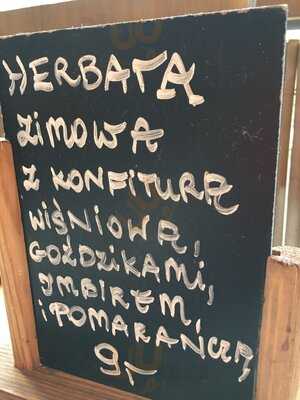 HERBATA
ZIMOWA
Z KONFITURĄ
WIŚNIOWĄ,
GOŹDZIKAMI,
IMBIREM,
I POMARAŃCZĄ
9,-